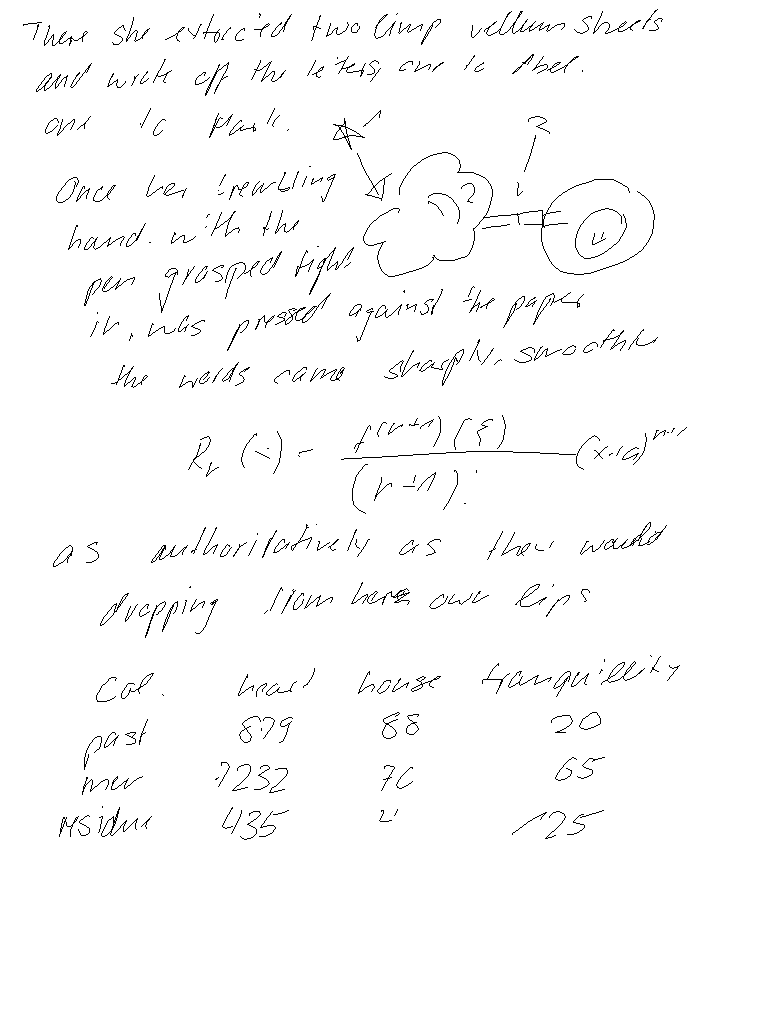 There she extorted two limp vellum sheets
and wrote off the letters, one to Abel.
one to Mark.
1
2
Once her trembling
hand. with the
pen grasped tight
in, was pressed against the paper
the words came sharply, smoothly
R_n (x) = f^(n+1) (ξ) / (n+1)! (x-a)^n+1
as authoritatively as they would
dropping from her own lips
Col. heart house tranquillity
past 879 88 20
men 7232 70 65
residue 435 4 125